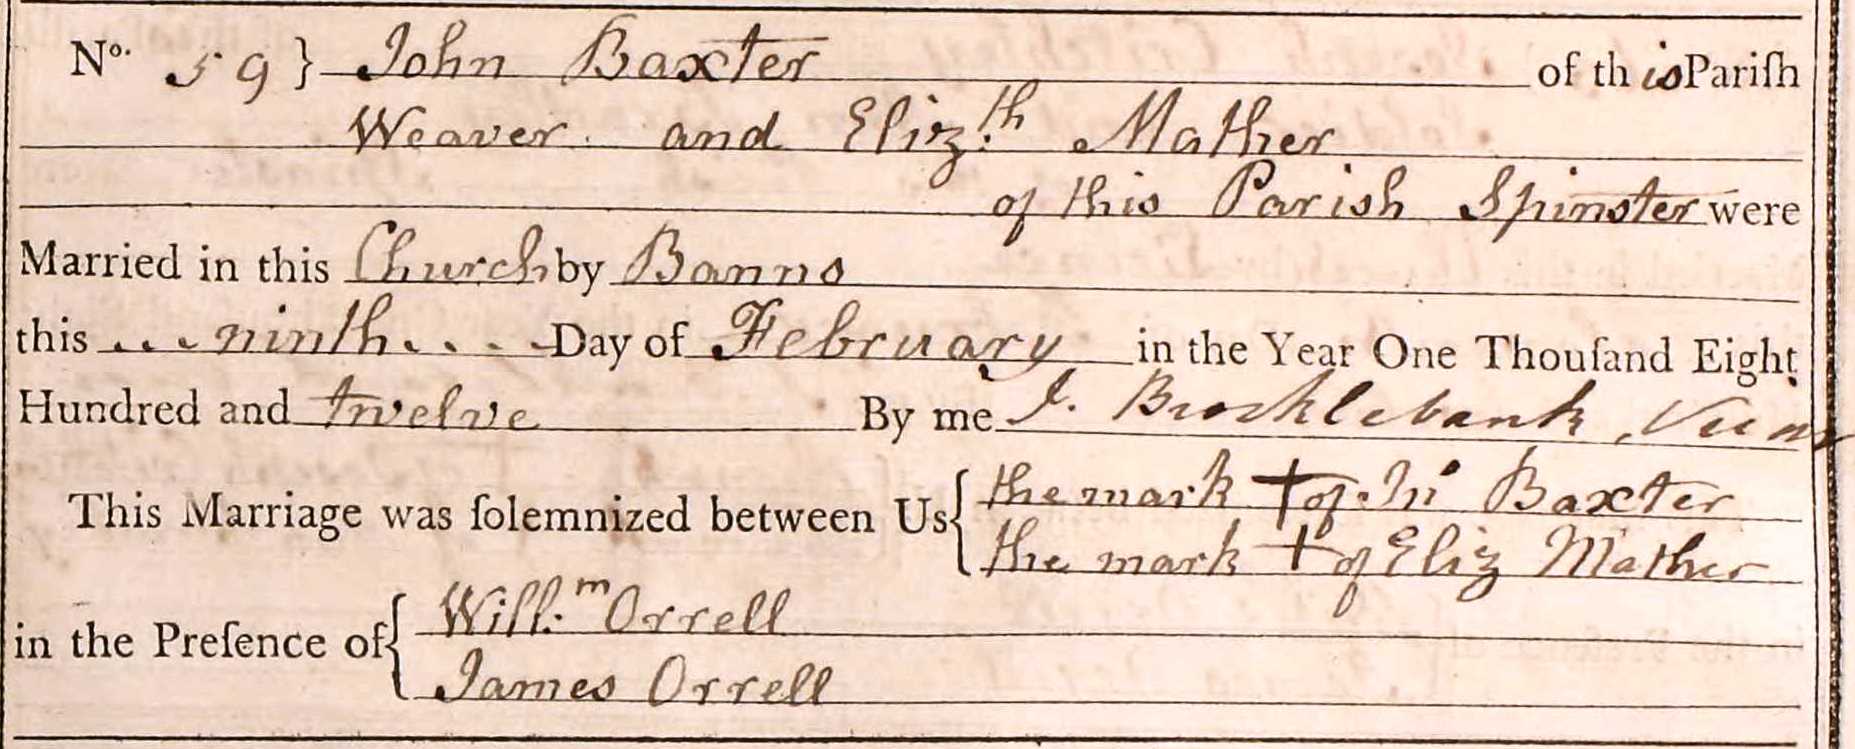 No. 59} John Baxter of this Pariſh
Weaver and Eliz.th Mather
of this Parish Spinster were
Married in this Church by Banns
this ... ninth. . . . Day of February in the Year One Thouſand Eight
Hundred and twelve By me J. Brocklebank, Vicar
This Marriage was ſolemnized between Us { the mark + of Jn Baxter
the mark + of Eliz Mather
in the Preſence of { Will.m Orrell
James Orrell